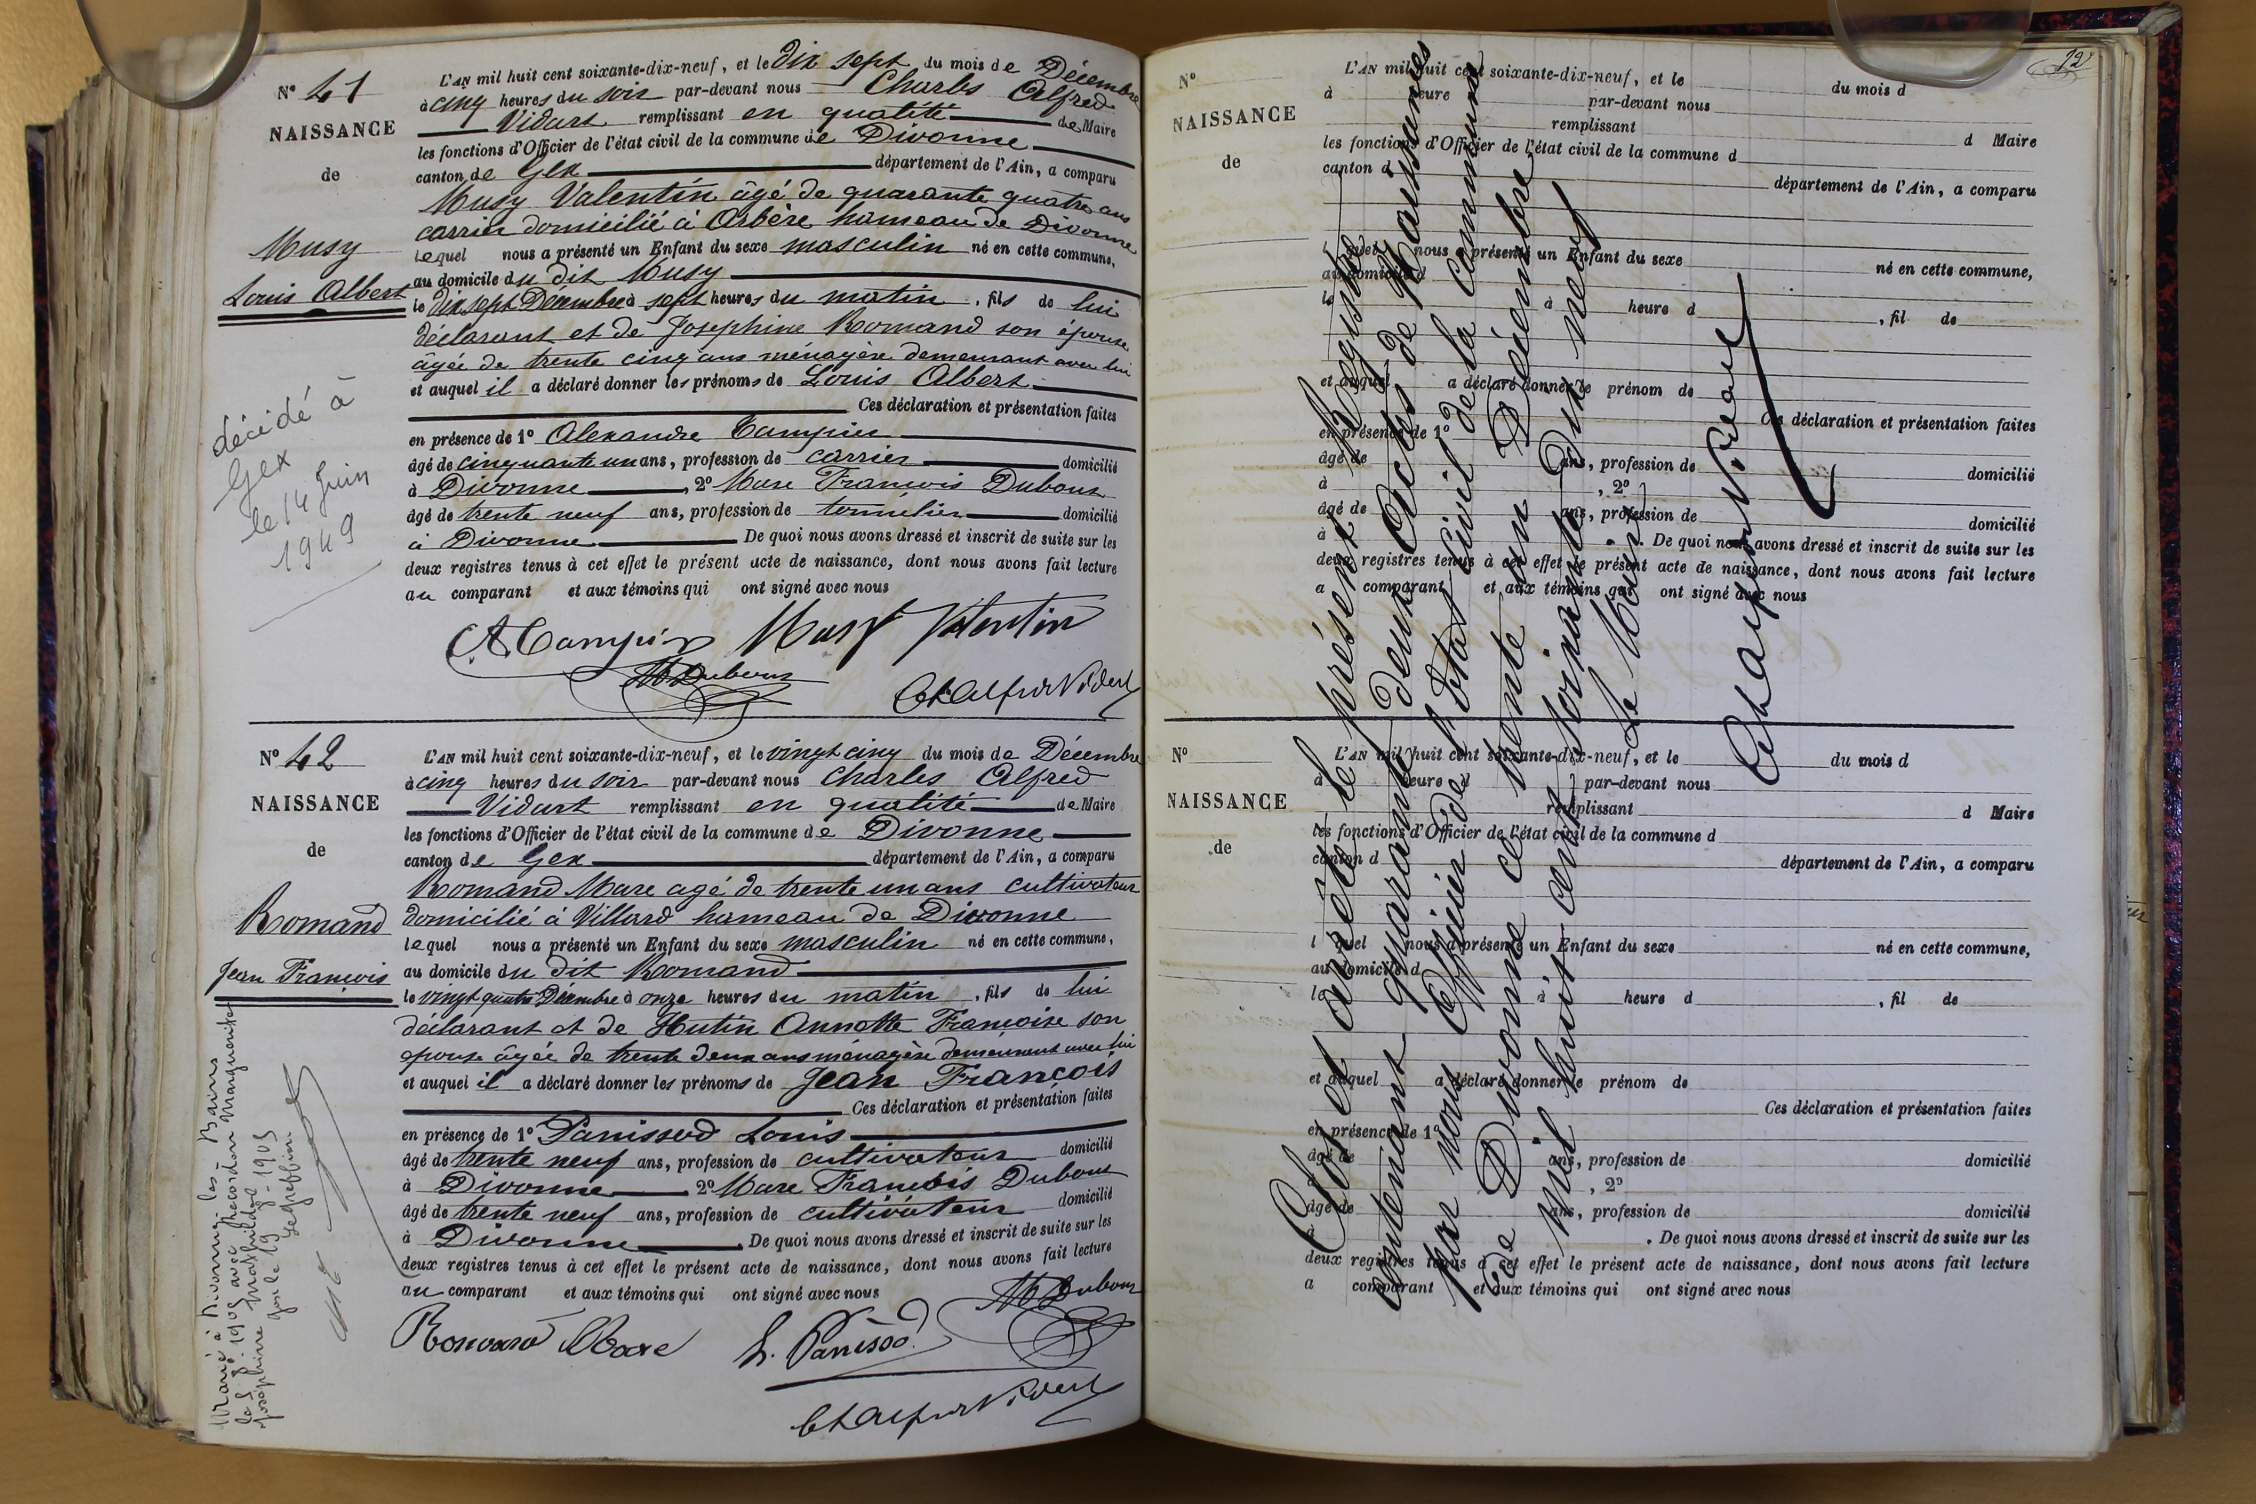 N° 41
NAISSANCE
de
Musy
Louis Albert
décidé à
Gex
le 14 Juin
1949
L'AN mil huit cent soixante-dix-neuf, et le Dix sept du mois de Décembre
à cinq heures du soir par-devant nous Charles Alfred
Vidart remplissant en qualité de Maire
les fonctions d'Officier de l'état civil de la commune de Divonne
canton de Gex département de l'Ain, a comparu
Musy Valentin âgé de quarante quatre ans
carrier domicilié à Arbère hameau de Divonne
lequel nous a présenté un Enfant du sexe masculin né en cette commune,
au domicile du dit Musy
le dix sept Décembre à sept heures du matin, fils de lui
déclarant et de Josephine Romand son épouse
âgée de trente cinq ans ménagère demeurant avec lui
et auquel il a déclaré donner les prénoms de Louis Albert
Ces déclaration et présentation faites
en présence de 1° Alexandre
âgé de cinquante un ans, profession de carrier domicilié
à Divonne, 2° Marc François Dubout
âgé de trente neuf ans, profession de tonnelier domicilié
à Divonne De quoi nous avons dressé et inscrit de suite sur les
deux registres tenus à cet effet le présent acte de naissance, dont nous avons fait lecture
au comparant et aux témoins qui ont signé avec nous
Musy Valentin
N° 42
NAISSANCE
de
Romand
Jean François
Marié à Divonne-les-Bains
L'AN mil huit cent soixante-dix-neuf, et le vingt cinq du mois de Décembre
à cinq heures du soir par-devant nous Charles Alfred
Vidart remplissant en qualité de Maire
les fonctions d'Officier de l'état civil de la commune de Divonne
canton de Gex département de l'Ain, a comparu
Romand Marc agé de trente un ans cultivateur
domicilié à Villard hameau de Divonne
lequel nous a présenté un Enfant du sexe masculin né en cette commune,
au domicile du dit Romand
le vingt quatre Décembre à onze heures du matin, fils de lui
déclarant et de Hutin Annette Françoise son
epouse âgée de trente deux ans ménagère demeurant avec lui
et auquel il a déclaré donner les prénoms de Jean François
Ces déclaration et présentation faites
en présence de 1° Panissod Louis
âgé de trente neuf ans, profession de cultivateur domicilié
à Divonne 2° Marc François Dubout
âgé de trente neuf ans, profession de cultivateur domicilié
à Divonne. De quoi nous avons dressé et inscrit de suite sur les
deux registres tenus à cet effet le présent acte de naissance, dont nous avons fait lecture
au comparant et aux témoins qui ont signé avec nous
Romand Marc L. Panissod
12
N°
NAISSANCE
de
L'AN mil huit cent soixante-dix-neuf, et le du mois d
à heure par-devant nous
remplissant d Maire
les fonctions d'Officier de l'état civil de la commune d
canton d département de l'Ain, a comparu
l quel nous a présenté un Enfant du sexe né en cette commune,
au domicile d
le à heure d , fil de
et auquel a déclaré donner le prénom de
Ces déclaration et présentation faites
en présence de 1°
âgé de ans, profession de domicilié
à , 2°
âgé de ans, profession de domicilié
à . De quoi nous avons dressé et inscrit de suite sur les
deux registres tenus à cet effet le présent acte de naissance, dont nous avons fait lecture
a comparant et aux témoins qui ont signé avec nous
N°
NAISSANCE
de
L'AN mil huit cent soixante-dix-neuf, et le du mois d
à heure d par-devant nous
remplissant d Maire
les fonctions d'Officier de l'état civil de la commune d
canton d département de l'Ain, a comparu
l quel nous a présenté un Enfant du sexe né en cette commune,
au domicile d
le à heure d , fil de
et auquel a déclaré donner le prénom de
Ces déclaration et présentation faites
en présence de 1°
âgé de ans, profession de domicilié
à , 2°
âgé de ans, profession de domicilié
à . De quoi nous avons dressé et inscrit de suite sur les
deux registres tenus à cet effet le présent acte de naissance, dont nous avons fait lecture
a comparant et aux témoins qui ont signé avec nous
Clos et arrêté le présent Registre
contenant quarante deux Actes de Naissances
par nous Officier de l'état Civil de la commune
de Divonne ce trente un Décembre
mil huit-cent soixante Dix neuf
Le Maire
Ch Alfred Vidart